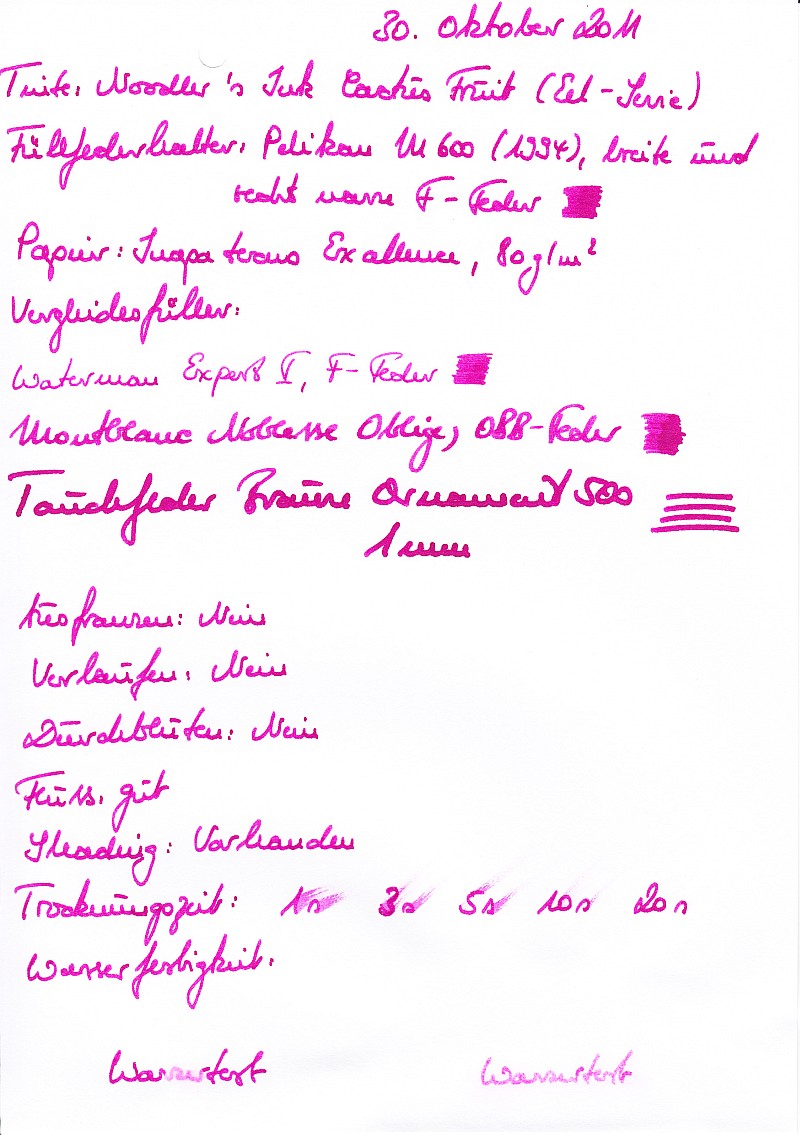 30. Oktober 2011
Tinte: Noodler's Ink Cactus Fruit (Eel-Serie)
Füllfederhalter: Pelikan M 600 (1994), breite und
recht nasse F-Feder
Papier: Inapa tecno Excellence, 80g/m²
Vergleichsfüller:
Waterman Expert I, F-Feder
Montblanc Noblesse Oblige, OBB-Feder
Tauchfeder Brause Ornament 500
1 mm
Ausfransen: Nein
Verlaufen: Nein
Durchbluten: Nein
Fluss: gut
Shading: Vorhanden
Trocknungszeit: 1s 3s 5s 10s 20s
Wasserfestigkeit:
Wassertest Wassertest